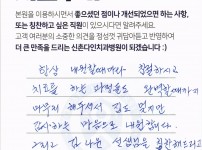 본원을 이용하시면서 좋으셨던 점이나 개선되었으면 하는 사항,
또는 칭찬하고 싶은 직원이 있으시다면 말씀해주세요.
고객 여러분의 소중한 의견을 정성껏 귀담아듣고 반영하여
더 큰 만족을 드리는 신촌다인치과병원이 되겠습니다 :)
항상 내원할때마다 친절하시고
치료를 하는 과정들도 완벽할때까지
마무리 해주셔서 믿고 맡기며
감사하는 마음으로 내원합니다.
그리고 김 나 선생님을 칭찬해드리고